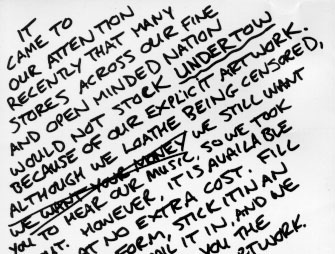 IT
CAME TO
OUR ATTENTION
RECENTLY THAT MANY
STORES ACROSS OUR FINE
AND OPEN MINDED NATION
WOULD NOT STOCK UNDERTOW
BECAUSE OF OUR EXPLICIT ARTWORK.
ALTHOUGH WE LOATHE BEING CENSORED,
WE WANT YOUR MONEY WE STILL WANT
YOU TO HEAR OUR MUSIC, SO WE TOOK
IT OUT. HOWEVER, IT IS AVAILABLE
AT NO EXTRA COST. FILL
FORM, STICK IT IN AN
MAIL IT IN, AND WE
YOU THE
ARTWORK.